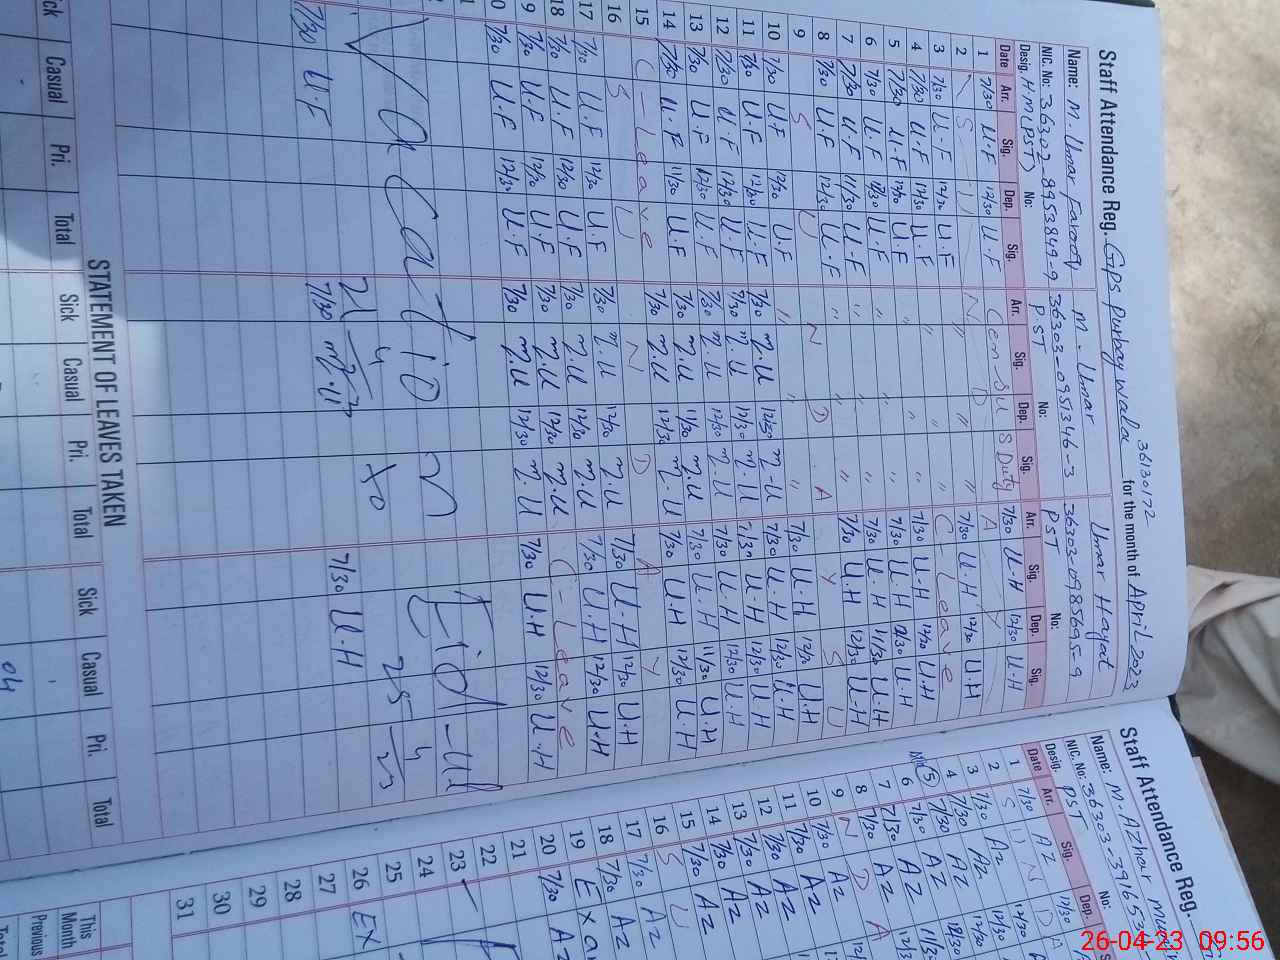 Staff Attendance Reg. GPS Purbay wala for the month of April 2023
36130172
Name: M. Umar Farooq M. Umar Umar Hayat
NIC. No: 36302-8953849-9 36303-0951346-3 36303-0985695-9
Desig. HM (PST) No: PST No: PST No:
Date Arr. Sig. Dep. Sig. Arr. Sig. Dep. Sig. Arr. Sig. Dep. Sig.
1 7/30 U.F 12/30 U.F Censu s Duty 7/30 U.H 12/30 U.H
2 S U N D A Y
3 7/30 U.F 12/30 U.F " " " 7/30 U.H 12/30 U.H
4 7/30 U.F 12/30 U.F " " " C-Leave
5 7/30 U.F 12/30 U.F " " " 7/30 U.H 12/30 U.H
6 7/30 U.F 12/30 U.F " " " 7/30 U.H 12/30 U.H
7 7/30 U.F 11/30 U.F " " " 7/30 U.H 11/30 U.H
8 7/30 U.F 12/30 U.F " " " 7/30 U.H 12/30 U.H
9 S U N D A Y S U
10 7/30 U.F 12/30 U.F " " " 7/30 U.H 12/30 U.H
11 7/30 U.F 12/30 U.F 7/30 M.U 12/30 M.U 7/30 U.H 12/30 U.H
12 7/30 U.F 12/30 U.F 7/30 M.U 12/30 M.U 7/30 U.H 12/30 U.H
13 7/30 U.F 12/30 U.F 7/30 M.U 12/30 M.U 7/30 U.H 12/30 U.H
14 7/30 U.F 11/30 U.F 7/30 M.U 11/30 M.U 7/30 U.H 11/30 U.H
15 C-Leave 7/30 M.U 12/30 M.U 7/30 U.H 12/30 U.H
16 S U N D A Y
17 7/30 U.F 12/30 U.F 7/30 M.U 12/30 M.U 7/30 U.H 12/30 U.H
18 7/30 U.F 12/30 U.F 7/30 M.U 12/30 M.U 7/30 U.H 12/30 U.H
19 7/30 U.F 12/30 U.F 7/30 M.U 12/30 M.U C-Leave
20 7/30 U.F 12/30 U.F 7/30 M.U 12/30 M.U 7/30 U.H 12/30 U.H
Vacation Eid-ul
21/4/23 to 25/4/23
7/30 U.F 7/30 M.U 7/30 U.H
STATEMENT OF LEAVES TAKEN
Sick Casual Pri. Total Sick Casual Pri. Total Sick Casual Pri. Total
04
Staff Attendance Reg.
Name: M. AZhar
NIC. No: 36303-39165
Desig. PST No:
Date Arr. Sig. Dep.
1 7/30 AZ 12/30
2 S U N D A
3 7/30 AZ 12/30
4 7/30 AZ 12/30
5 7/30 AZ
6 7/30 AZ
7 7/30 AZ 11/30
8 7/30 AZ
9 N D A
10 7/30 AZ
11 7/30 AZ
12 7/30 AZ
13 7/30 AZ
14 7/30 AZ
15 7/30 AZ
16 S U
17 7/30 AZ
18 7/30 AZ
19 Exa
20 7/30 AZ
21
22
23
24
25
26 EX
27
28
29
30
31
This Month
Previous
Total
26-04-23 09:56